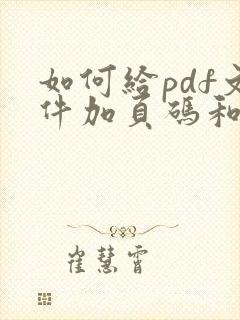 如何给pdf文
件加页码和
崔慧霄